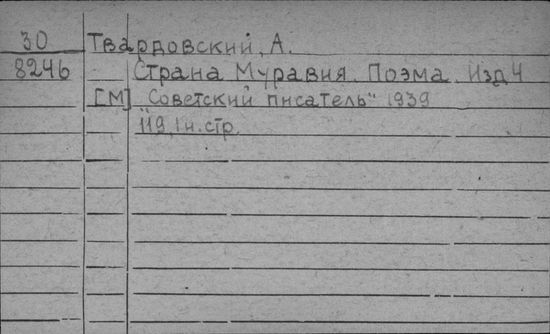 30 Твардовский, А.
8246 Страна Муравия. Поэма. Изд 4
[М] „Советский писатель" 1939
119, 1 н. стр.